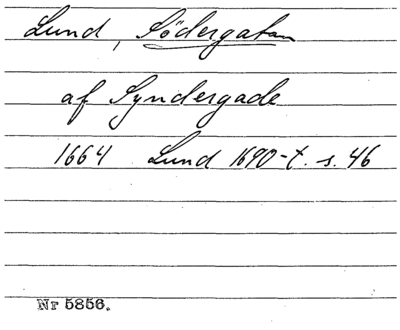 Lund, Södergatan
af Syndergade
1664 Lund 1690-t. s. 46
Nr 5856.